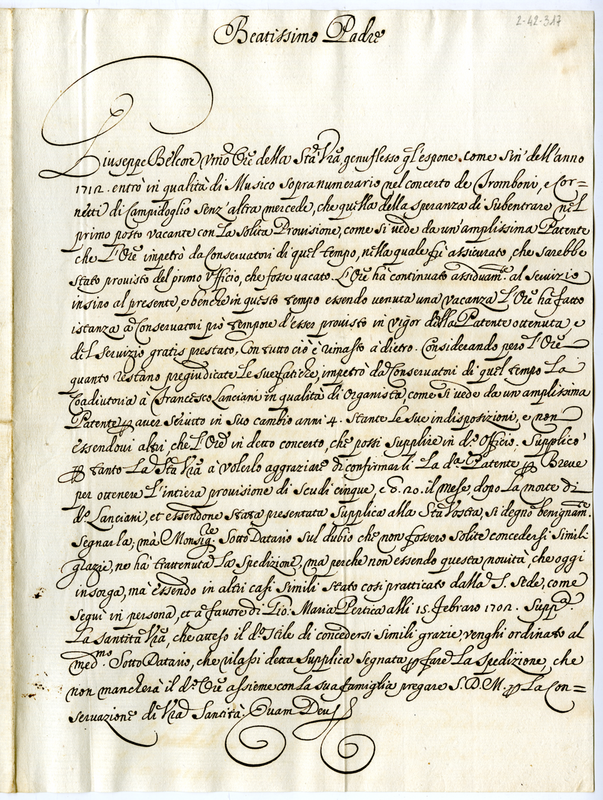 2-42-317
Beatissimo Padre
Giuseppe Belcore, umo Ore della Stà Vrã, genuflesso gl'espone, come sin' dell'anno
1712. entrò in qualità di Musico sopranumerario nel concerto de Tromboni, e Cor=
netti di Campidoglio senz'altra mercede, che quella della speranza di Subentrare nel
primo posto vacante con la solita Provisione, come si vede da un'amplissima Patente
che l'Ore impetrò da Conservatori di quel tempo, nella quale fù assicurato, che sarebbe
stato provisto del primo Ufficio, che fosse vacato. L'Ore hà continuato assiduamte al servizio
insino al presente, e benche in questo tempo essendo venuta una vacanza l'Ore hà fatto
istanza à Conservatori prõ tempore d'esser provisto in vigor della Patente ottenuta, e
del servizio gratis prestato, con tutto ciò è rimasto à dietro. Considerando però l'Ore
quanto restano pregiudicate le sue fatiche, impetrò da Conservatori di quel tempo la
Coadiutoria à Francesco Lanciani in qualità di Organista, come si vede da un amplissima
Patente p aver servito in suo cambio anni 4. stante le sue indisposizioni, e non
essendovi altri, che l'Ore in detto concerto, che possi supplire in do. Officio. Supplico
p tanto la Stà Vrã à volerlo aggraziare di confirmarli la da. Patente p Breve
per ottenere l'intiera provisione di scudi cinque, e b. 20. il mese, dopo la morte di
do. Lanciani, et essendone stata presentata supplica alla Stà Vostra, si degnò benignamte
segnarla, mà Monsigre Sotto Datario sul dubio che non fossero solite concedersi simili
grazie, ne hà trattenuta la spedizione, ma perche non essendo questa novità, che oggi
insorga, mà essendo in altri casi simili stato così pratticato dalla S. Sede, come
seguì in persona, et à favore di Gio: Maria Pertica alli 15. Febraro 1702. Suppca
La santità Vrã, che atteso il do. stile di concedersi simili grazie, venghi ordinato al
medmo Sotto Datario, che rilasci detta supplica segnata p fare la spedizione, che
non mancherà il do. Ore assieme con la sua famiglia pregare S. D. M. p la Con=
servazione di Vrã Santità. Quam Deus